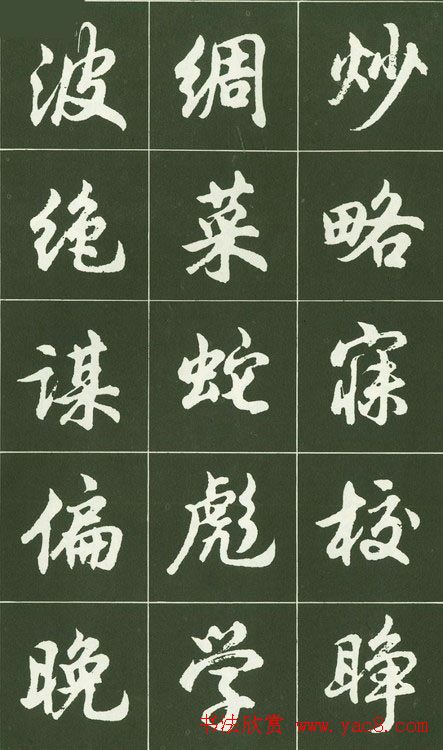 波绸炒
绝菜略
谋蛇寐
偏彪校
晚学睁
书法欣赏 www.yac8.com